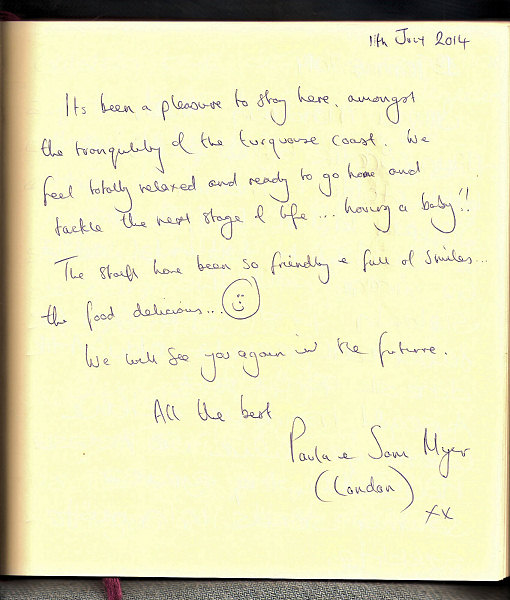 11th July 2014
Its been a pleasure to stay here, amongst
the tranquility of the turquoise coast. We
feel totally relaxed and ready to go home and
tackle the next stage of life ... having a baby!!
The staff have been so friendly & full of smiles...
the food delicious...
We will see you again in the future.
All the best
Paula & Sam Myer
(London)
xx